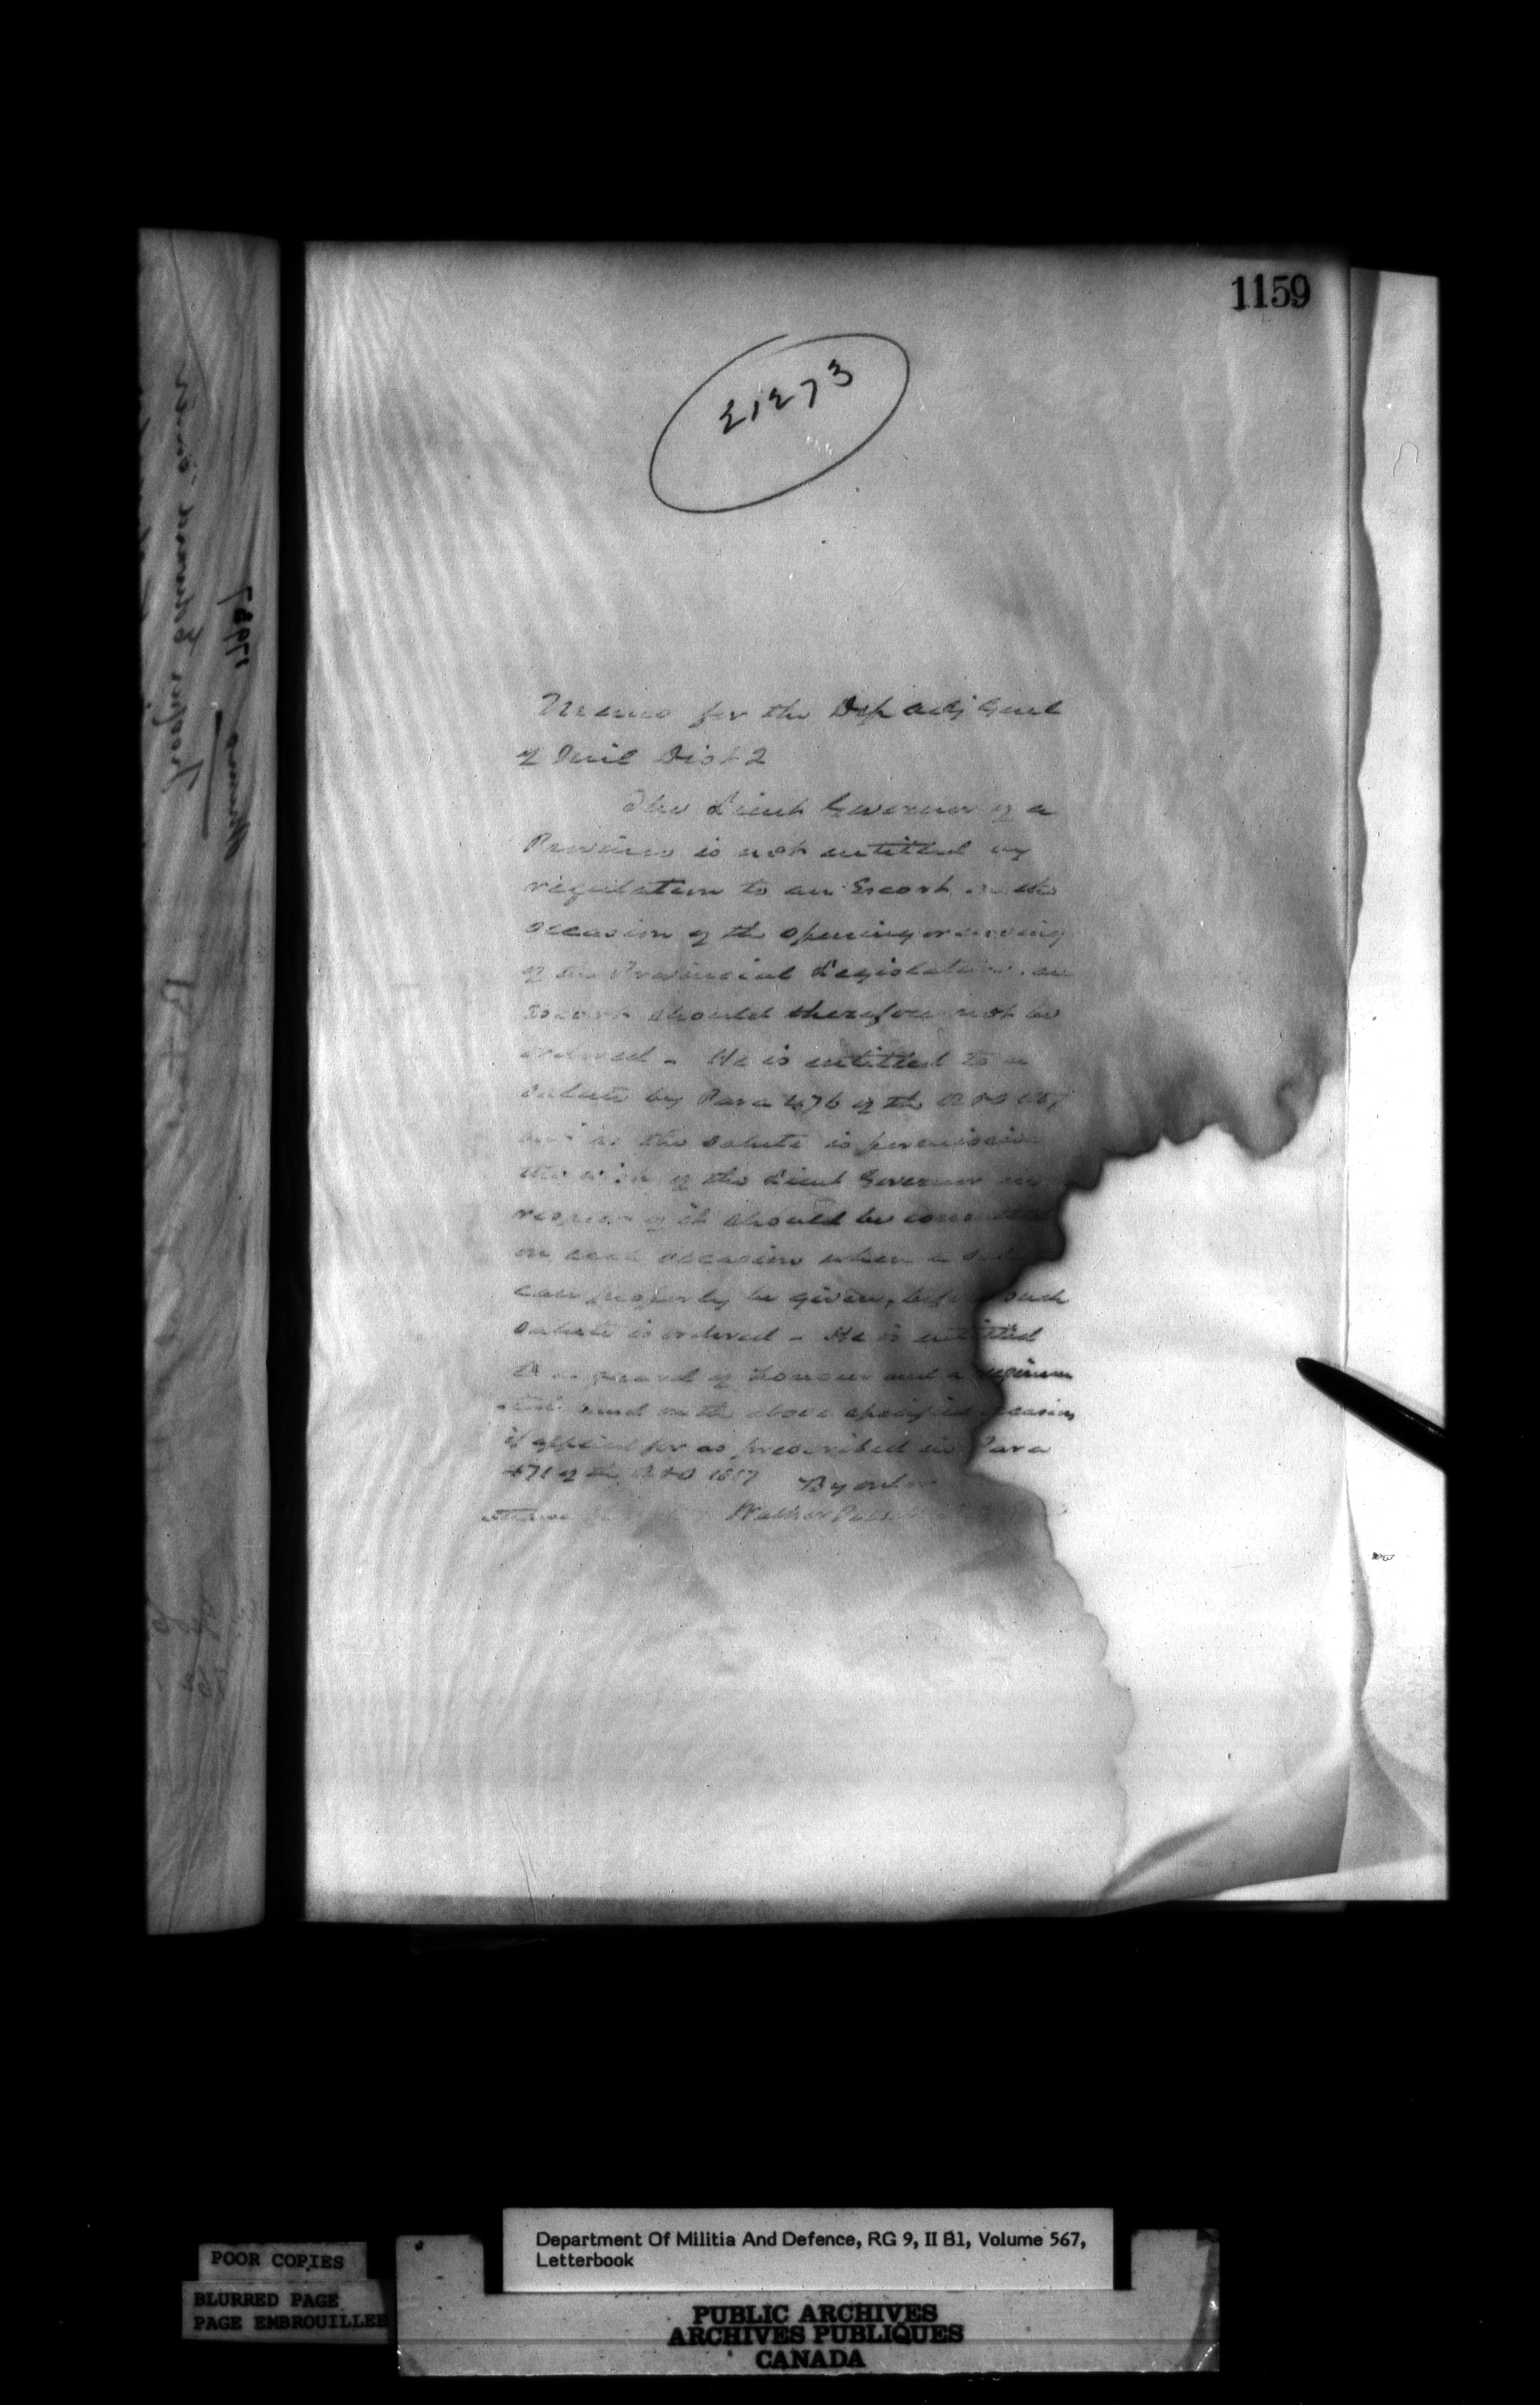 1159
21273
Memo for the Dep Adj Genl
of Mil Dist 2
The Lieut Governor of a
Province is not entitled by
regulation to an Escort on the
occasion of the opening or closing
of the Provincial Legislature. an
Escort should therefore not be
ordered - He is entitled to a
salute by Para 476 of the R & O 1887
but as the salute is permissive
the wish of the Lieut Governor in
respect of it should be consulted
on each occasion when a salute
can properly be given, before such
salute is ordered - He is entitled
to a guard of honour and a regimen
-tal band on the above specified occasions
if applied for as prescribed in Para
471 of the R & O 1887 By order
Walker Powell
Memo 17987
POOR COPIES
BLURRED PAGE
PAGE EMBROUILLEE
Department Of Militia And Defence, RG 9, II B1, Volume 567,
Letterbook
PUBLIC ARCHIVES
ARCHIVES PUBLIQUES
CANADA